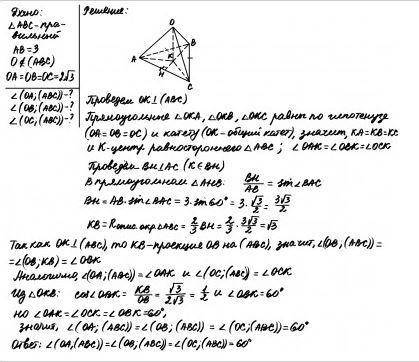 Дано:
△ABC - пра-
вильный
AB = 3
O ∉ (ABC)
OA = OB = OC = 2√3
∠(OA; (ABC)) - ?
∠(OB; (ABC)) - ?
∠(OC; (ABC)) - ?
Решение:
O
B
A
K
H
C
Проведем OK ⊥ (ABC)
Прямоугольные △OKA, △OKB, △OKC равны по гипотенузе
(OA = OB = OC) и катету (OK - общий катет), значит, KA = KB = KC
и K - центр равностороннего △ABC; ∠OAK = ∠OBK = ∠OCK
Проведем BH ⊥ AC (K ∈ BH)
В прямоугольном △AHB: BH/AB = sin∠BAC
BH = AB · sin∠BAC = 3 · sin 60° = 3 · √3/2 = 3√3/2
KB = Rопис.окр.△ABC = 2/3 BH = 2/3 · 3√3/2 = √3
Так как OK ⊥ (ABC), то KB - проекция OB на (ABC), значит, ∠(OB; (ABC)) =
= ∠(OB; KB) = ∠OBK
Аналогично, ∠(OA; (ABC)) = ∠OAK и ∠(OC; (ABC)) = ∠OCK
Из △OKB: cos∠OBK = KB/OB = √3/2√3 = 1/2 и ∠OBK = 60°
но ∠OAK = ∠OCK = ∠OBK = 60°,
значит, ∠(OA; (ABC)) = ∠(OB; (ABC)) = ∠(OC; (ABC)) = 60°
Ответ: ∠(OA; (ABC)) = ∠(OB; (ABC)) = ∠(OC; (ABC)) = 60°